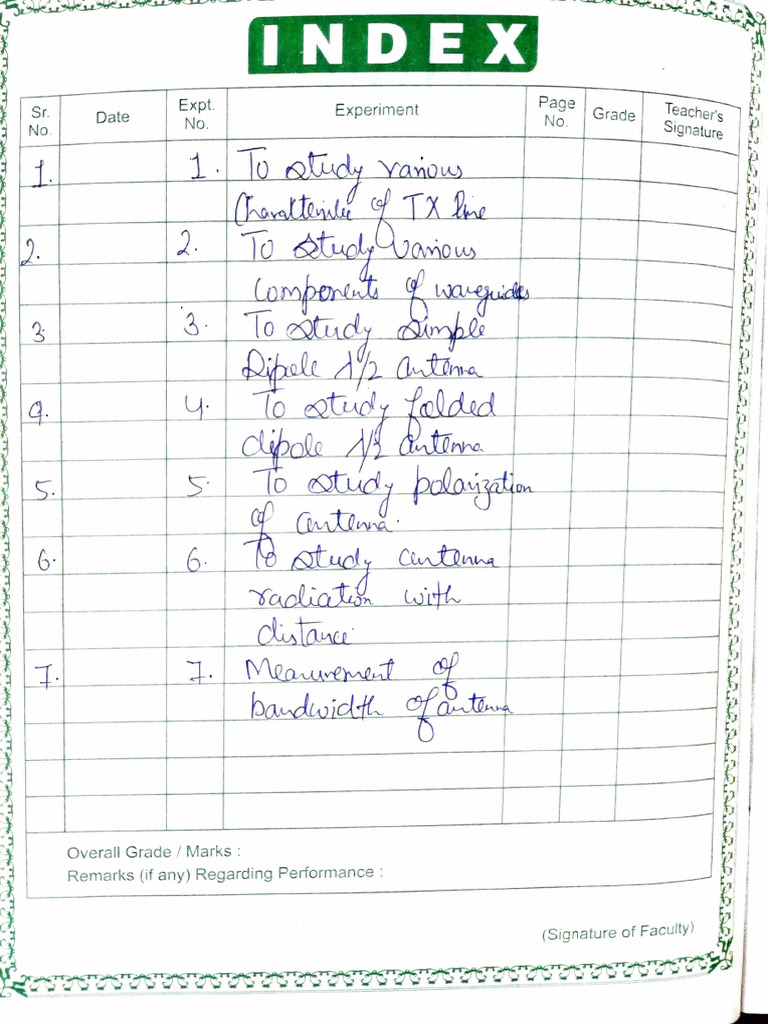 INDEX
Sr. No. Date Expt. No. Experiment Page No. Grade Teacher's Signature
1. 1. To study various
Characteristic of TX line
2. 2. To study various
components of waveguides
3. 3. To study simple
Dipole λ/2 antenna
4. 4. To study folded
dipole λ/2 antenna
5. 5. To study polarization
of antenna.
6. 6. To study antenna
radiation with
distance
7. 7. Measurement of
bandwidth of antenna
Overall Grade / Marks :
Remarks (if any) Regarding Performance :
(Signature of Faculty)